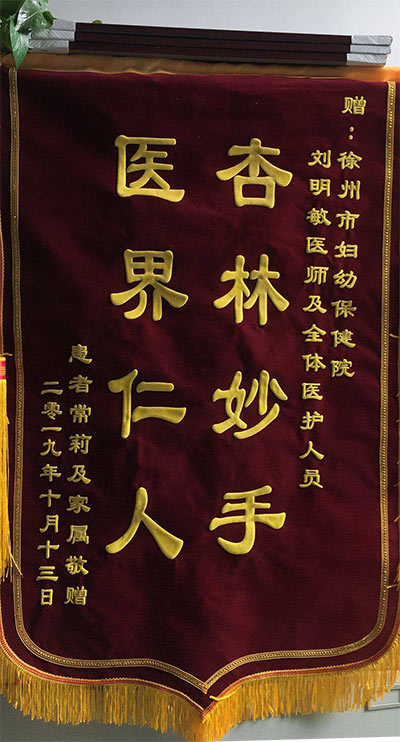 赠：徐州市妇幼保健院
刘明敏医师及全体医护人员
杏林妙手
医界仁人
患者常莉及家属敬赠
二零一九年十月十三日